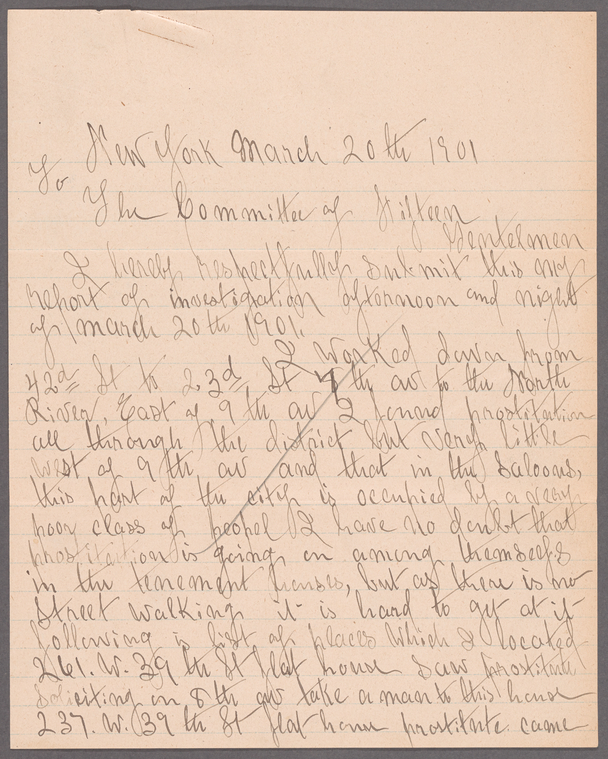 New York March 20th 1901
To
The Committee of Fifteen
Gentelmen
I hereby respectfully submit this my
report of investigation afternoon and night
of march 20th 1901.
I worked down from
42d St to 23d St 7th av to the North
River, East of 9th av I found prostitution
all through the district but very little
west of 9th av and that in the saloons,
this part of the city is occupied by a very
poor class of peopel I have no doubt that
prostitution is going on among themselfs
in the tenement houses, but as there is no
street walking it is hard to get at it
following is list of places which I located
261. W. 39th St flat house saw prostitute
soliciting on 8th av take a man to this house
237. W. 39th St flat house prostitute came